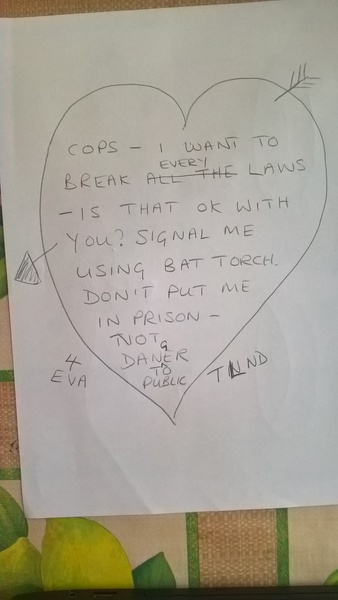 COPS – I WANT TO
EVERY
BREAK ALL THE LAWS
– IS THAT OK WITH
YOU? SIGNAL ME
USING BAT TORCH.
DON'T PUT ME
IN PRISON –
NOT
G
DANER
TO
PUBLIC
4
EVA
TLND